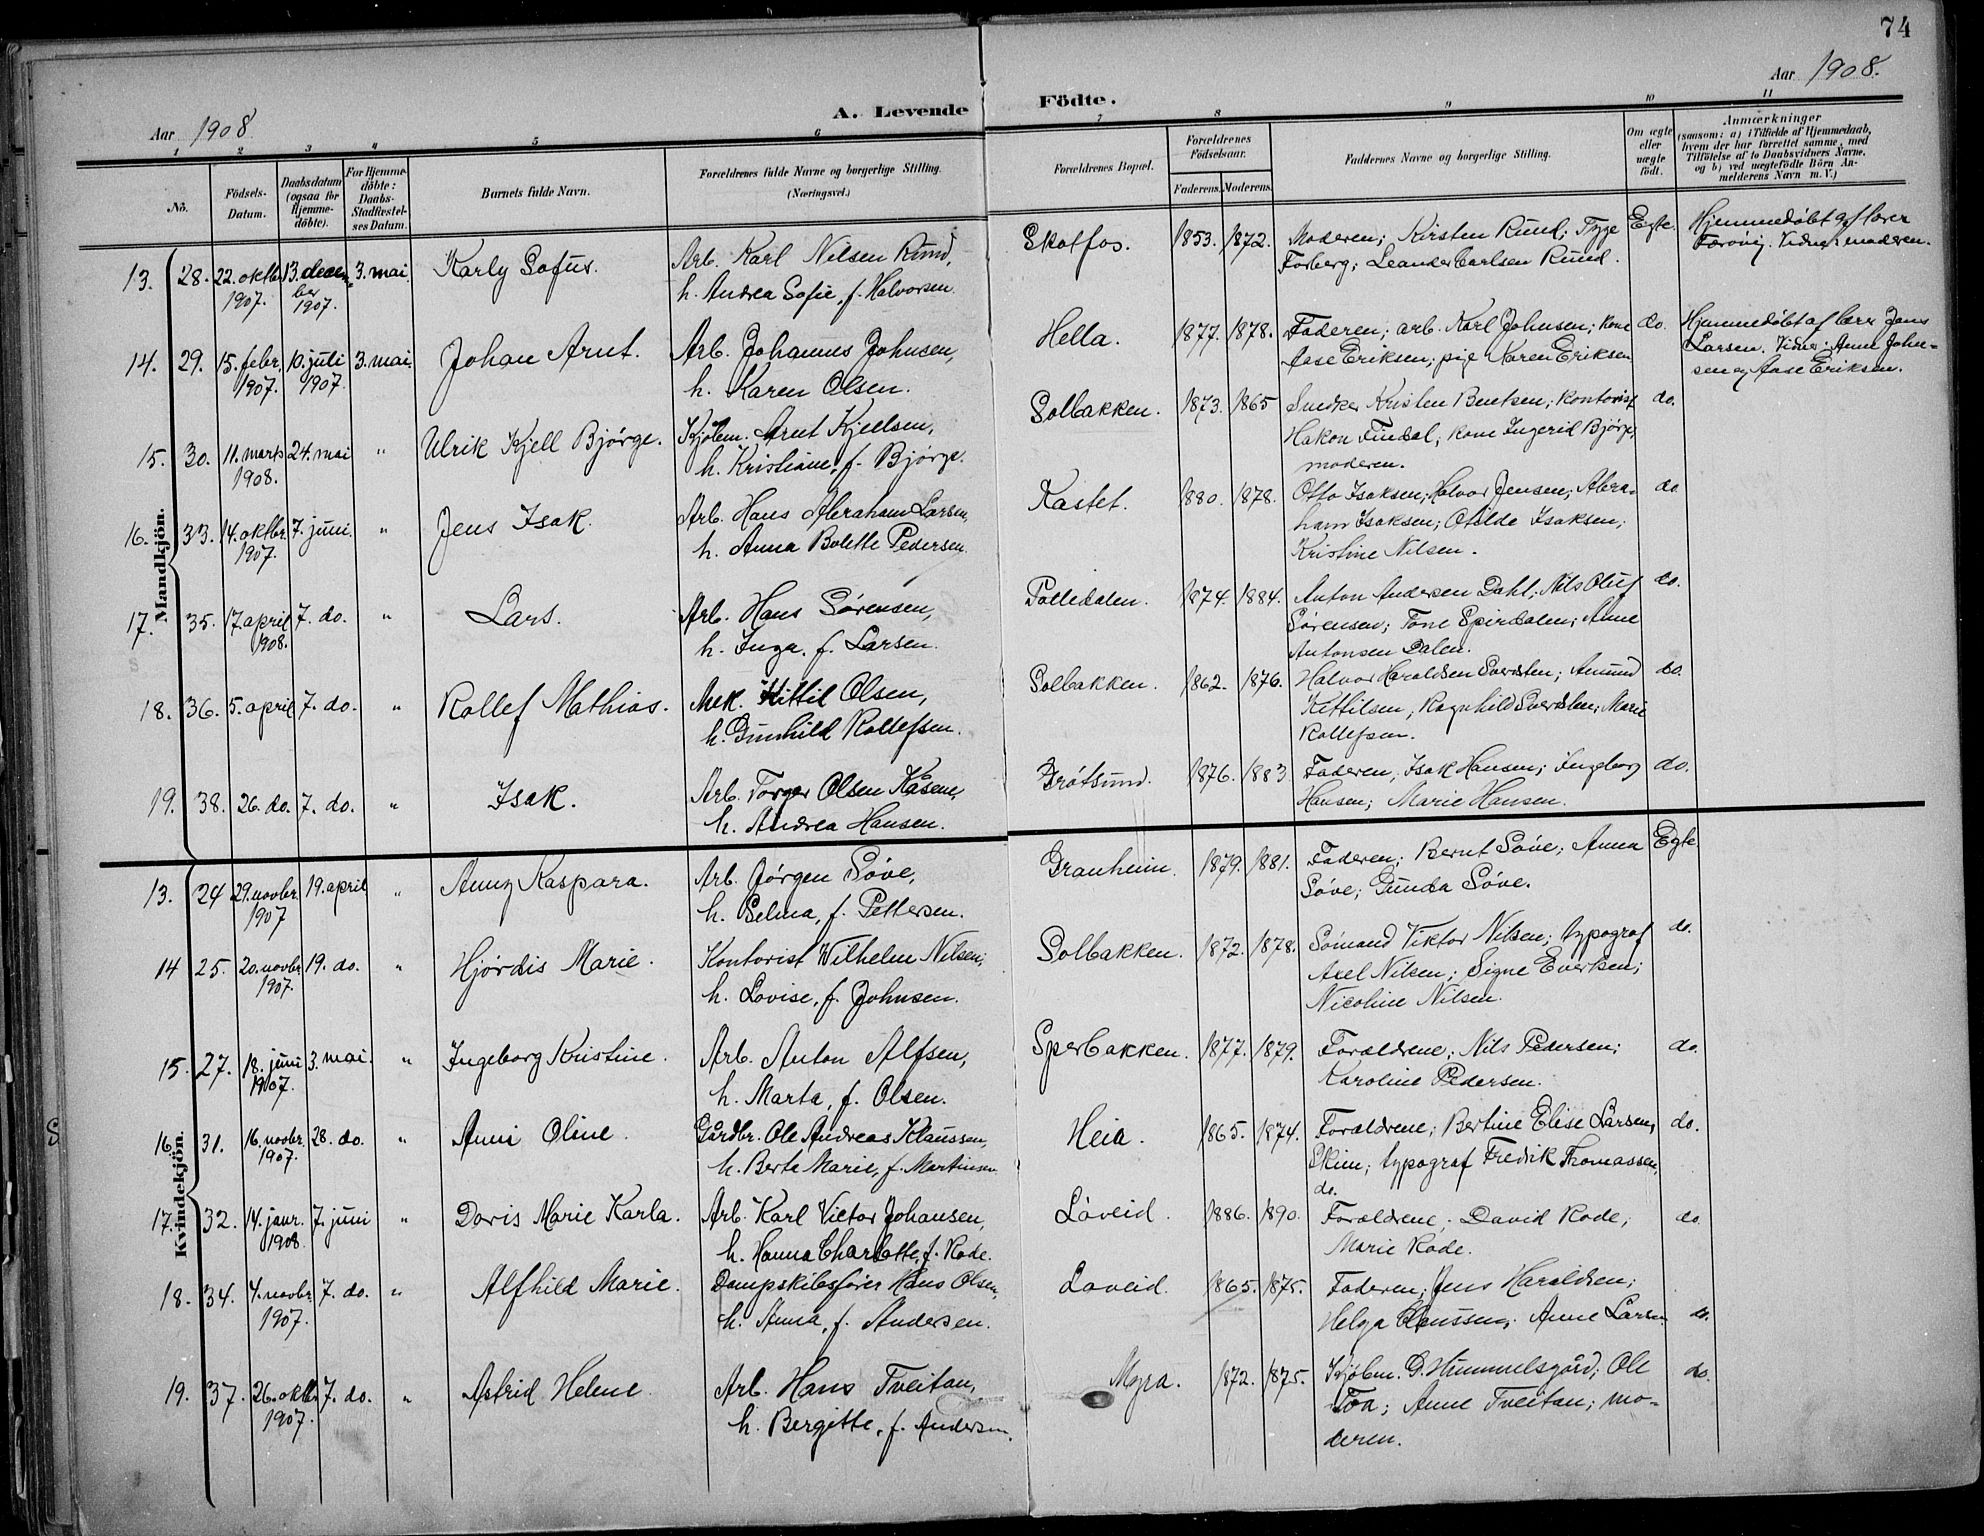 74
Aar 1908.
A. Levende Födte.
Aar 1908.
1 2 3 4 5 6 7 8 9 10 11
Nö.
Födsels-Datum.
Daabsdatum (ogsaa for Hjemme-döbte).
For Hjemme-döbte: Daabs-Stadfæstel-ses Datum.
Barnets fulde Navn.
Forældrenes fulde Navne og borgerlige Stilling. (Næringsvei.)
Forældrenes Bopæl.
Forældrenes Födselsaar.
Faderens. Moderens.
Faddernes Navne og borgerlige Stilling.
Om ægte eller uægte födt.
Anmærkninger
(saasom: a) i Tilfælde af Hjemmedaab,
hvem der har forrettet samme, med
Tilföielse af to Daabsvidners Navne,
og b) ved uægtefödte Börn An-
melderens Navn m. V.)
Mandkjön.
13. 28. 22. oktbr. 1907. 13. decem-ber 1907. 3. mai. Karly Sofus. Arb. Karl Nilsen Ruud, h. Andrea Sofie, f. Halvorsen. Skotfos. 1853. 1872. Moderen; Kirsten Ruud; Tyge Forberg; Leander Carlsen Ruud. Egte. Hjemmedøbt af lærer Færøvig. Vidne: moderen.
14. 29. 15. febr. 1907. 10. juli 1907. 3. mai. Johan Arnt. Arb. Johannes Johnsen, h. Karen Olsen. Hella. 1877. 1878. Faderen; arb. Karl Johnsen; kone Aase Eriksen; pige Karen Eriksen do. Hjemmedøbt af lærer Jens Larsen. Vidner: Anne John-sen og Aase Eriksen.
15. 30. 11. marts 1908. 24. mai " Ulrik Kjell Bjørge. Kjøbm. Arnt Kjeelsen, h. Kristiane, f. Bjørge. Solbakken. 1873. 1865 Snedker Kristen Bentsen; kontorist Hakon Findal; kone Ingerid Bjørge; moderen. do.
16. 33. 14. oktbr. 1907. 7. juni. " Jens Isak. Arb. Hans Abraham Larsen, h. Anna Bolette Pedersen. Kastet. 1880. 1878. Otto Isaksen; Halvor Jensen; Abra-ham Isaksen; Otilde Isaksen; Kristine Nilsen. do.
17. 35. 17. april 1908. 7. do. " Lars. Arb. Hans Sørensen, h. Inga, f. Larsen. Pollidalen. 1874. 1884. Anton Andersen Dahl; Nils Oluf Sørensen; Tone Spirdalen; Anne Antonsen Dalen. do.
18. 36. 5. april 7. do. " Rollef Mathias. Mek. Kittil Olsen, h. Gunhild Rollefsen. Solbakken. 1862. 1876. Halvor Haroldsen Sverdsten; Amund Kittilsen; Ragnhild Sverdsten; Marie Rollefsen. do.
19. 38. 26. do. 7. do. " Isak. Arb. Torger Olsen Kåsene, h. Andrea Hansen. Grøtsund. 1876. 1883. Faderen; Isak Hansen; Ingeborg Hansen; Marie Hansen. do.
Kvindekjön.
13. 24 29. novbr. 1907 19. april " Anny Kaspara. Arb. Jørgen Søve, h. Selma, f. Pettersen. Granheim. 1879. 1881. Faderen; Bernt Søve; Anna Søve; Gunda Søve. Egte
14 25. 20. novbr. 1907. 19. do. " Hjørdis Marie. Kontorist Wilhelm Nilsen; h. Lovise, f. Johnsen. Solbakken. 1872. 1878. Sømand Viktor Nilsen; typograf Axel Nilsen; Signe Evertsen; Nicoline Nilsen. do.
15. 27. 18. juni 1907. 3. mai. " Ingeborg Kristine. Arb. Anton Alfsen, h. Marta, f. Olsen. Sperbakken. 1877. 1879. Forældrene; Nils Pedersen; Karoline Pedersen. do.
16. 31. 16. novbr. 1907. 28. do. " Anni Oline. Gårdbr. Ole Andreas Klaussen, h. Berte Marie, f. Martinsen. Heia. 1865. 1874. Forældrene; Bertine Elise Larsen, Skien; typograf Fredrik Thomassen, do. do.
17. 32. 14. janr. 1908 7. juni " Doris Marie Karla. Arb. Karl Victor Johansen, h. Hanna Charlotte, f. Rode. Løveid. 1886. 1890. Forældrene; David Rode; Marie Rode. do.
18. 34. 4. novbr. 1907. 7. do. " Alfhild Marie. Dampskibsfører Hans Olsen, h. Anna, f. Andersen. Løveid. 1865. 1875. Faderen; Jens Haroldsen; Helga Clausseny; Anne Larsen do.
19. 37. 26. oktbr. 1907. 7. do. " Astrid Helene. Arb. Hans Tveitan, h. Bergitte, f. Andersen. Myra. 1872. 1875. Kjøbm. G. Hummelsgård; Ole Toa; Anne Tveitan; mo-deren. do.